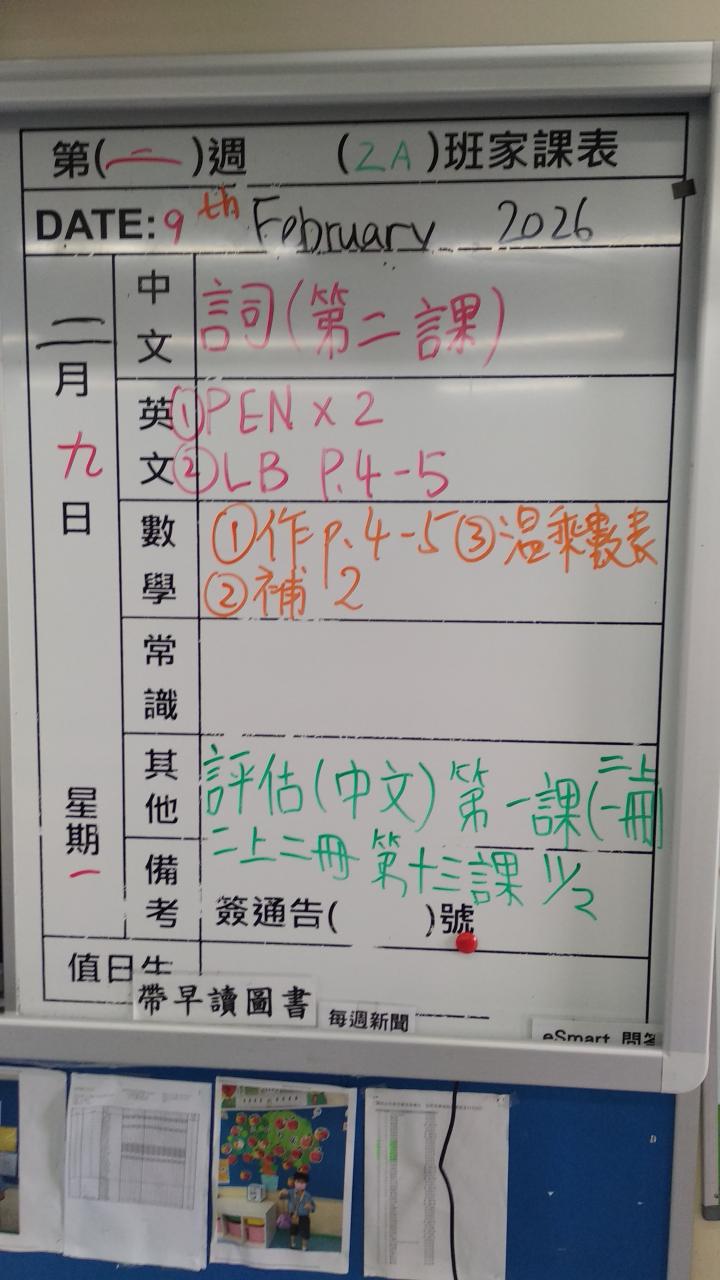 第(二)週 (2A)班家課表
DATE: 9th February 2026
二月九日 星期一
中文 詞(第二課)
英文 ①PEN x 2
②LB P.4-5
數學 ①作p.4-5 ③溫乘數表
②補 2
常識
其他 評估(中文)第一課(二上一冊)
二上二冊 第十三課 11/2
備考 簽通告( )號
值日生
帶早讀圖書 每週新聞
eSmart